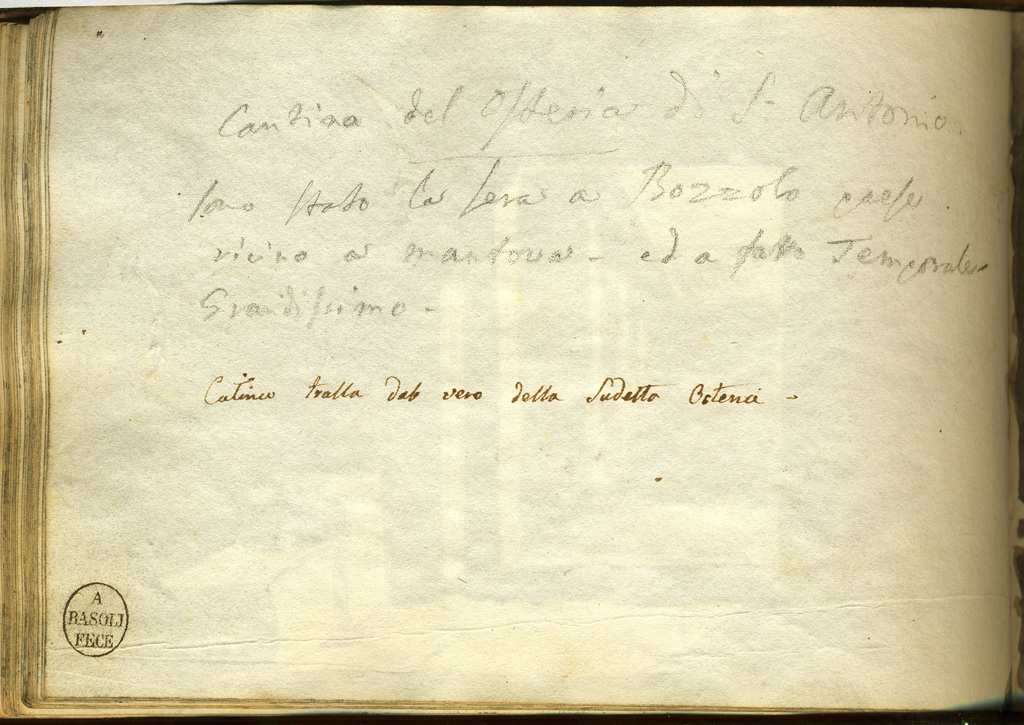 Cantina del Osteria di S. Antonio.
sono stato la sera a Bozzolo paese
vicino a mantova - ed a fatto Temporale
Grandissimo -
tratta dal vero della Sudetta Osteria -
A
BASOLI
FECE